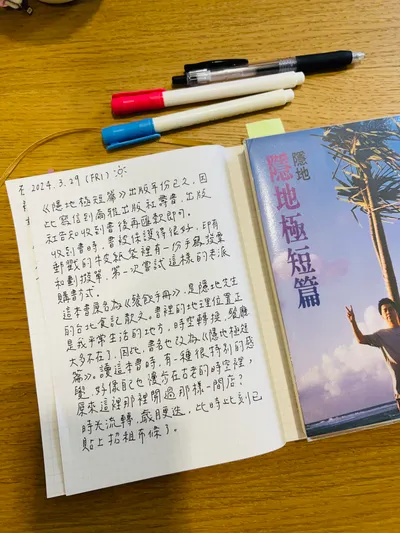 2024.3.29 (FRI)
《隱地極短篇》出版年份已久,因
此寫信到爾雅出版社購書,出版
社告知收到書後再匯款即可。
收到書時,書被保護得很好,印有
郵戳的牛皮紙袋裡有一份手寫發票
和劃撥單,第一次嘗試這樣的老派
購書方式。
這本書原名為《餐飲手冊》,是隱地先生
的台北食記散文。書裡的地理位置正
是我平常生活的地方,時空轉換,餐廳
大多不在了,因此,書名改為《隱地極短
篇》。讀這本書時,有一種很特別的感
覺,好像自己也漫步在古老的時空裡,
原來這裡那裡開過那樣一間店?
時光流轉,歲月更迭,此時此刻已
貼上招租布條了。
隱地
隱地極短篇